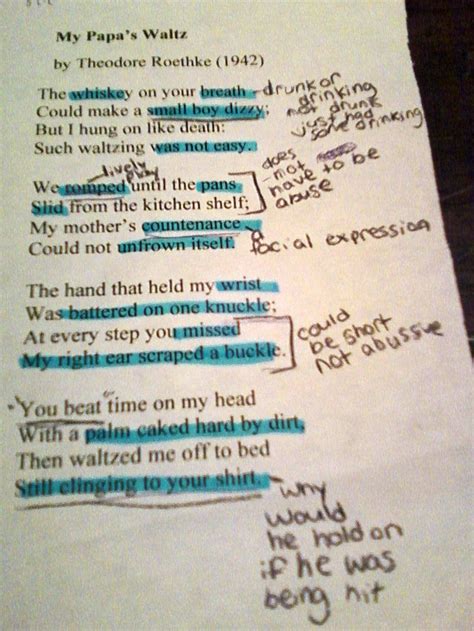 My Papa's Waltz
by Theodore Roethke (1942)
The whiskey on your breath - drunk or drinking
Could make a small boy dizzy; not drunk
But I hung on like death: just had
Such waltzing was not easy. some drinking
lively play
We romped until the pans does not
Slid from the kitchen shelf; have to be
My mother's countenance abuse
Could not unfrown itself. a facial expression
The hand that held my wrist
Was battered on one knuckle;
At every step you missed could
My right ear scraped a buckle. be short not abussive
"You beat time on my head
With a palm caked hard by dirt,
Then waltzed me off to bed
Still clinging to your shirt. - why
would
he hold on
if he was
being hit